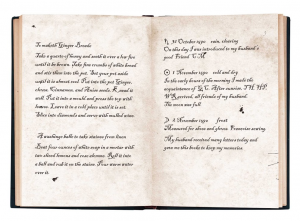 To maketh Ginger Breade
Take a quarte of honey and seeth it over a hot fire
until it be brown. Take fine crumbs of white bread
and stir these into the pot. Set your pot aside
until it is almost cool. Put into the pot Ginger,
Cloves, Cinnamon, and Anise seeds. Knead it
well. Put it into a mould and press the top with
leaves. Leave it in a cold place until it is set.
Slice into diamonds and serve with mulled wine.
A washinge balle to take staines from linen
Beat four ounces of white soap in a mortar with
two sliced lemons and rose alumns. Roll it into
a ball and rub it on the staine. Pour warm water
over it.
31 October 1590 rain, clearing
On this day I was introduced to my husband's
good Friend C M
1 November 1590 cold and dry
In the early hours of the morning I made the
acquaintance of G C. After sunrise, T H, H P,
W R arrived, all friends of my husband.
The moon was full.
2 November 1590 frost
Measured for shoes and gloves. Francoise sewing.
My husband received many letters today and
gave me this booke to keep my memories.